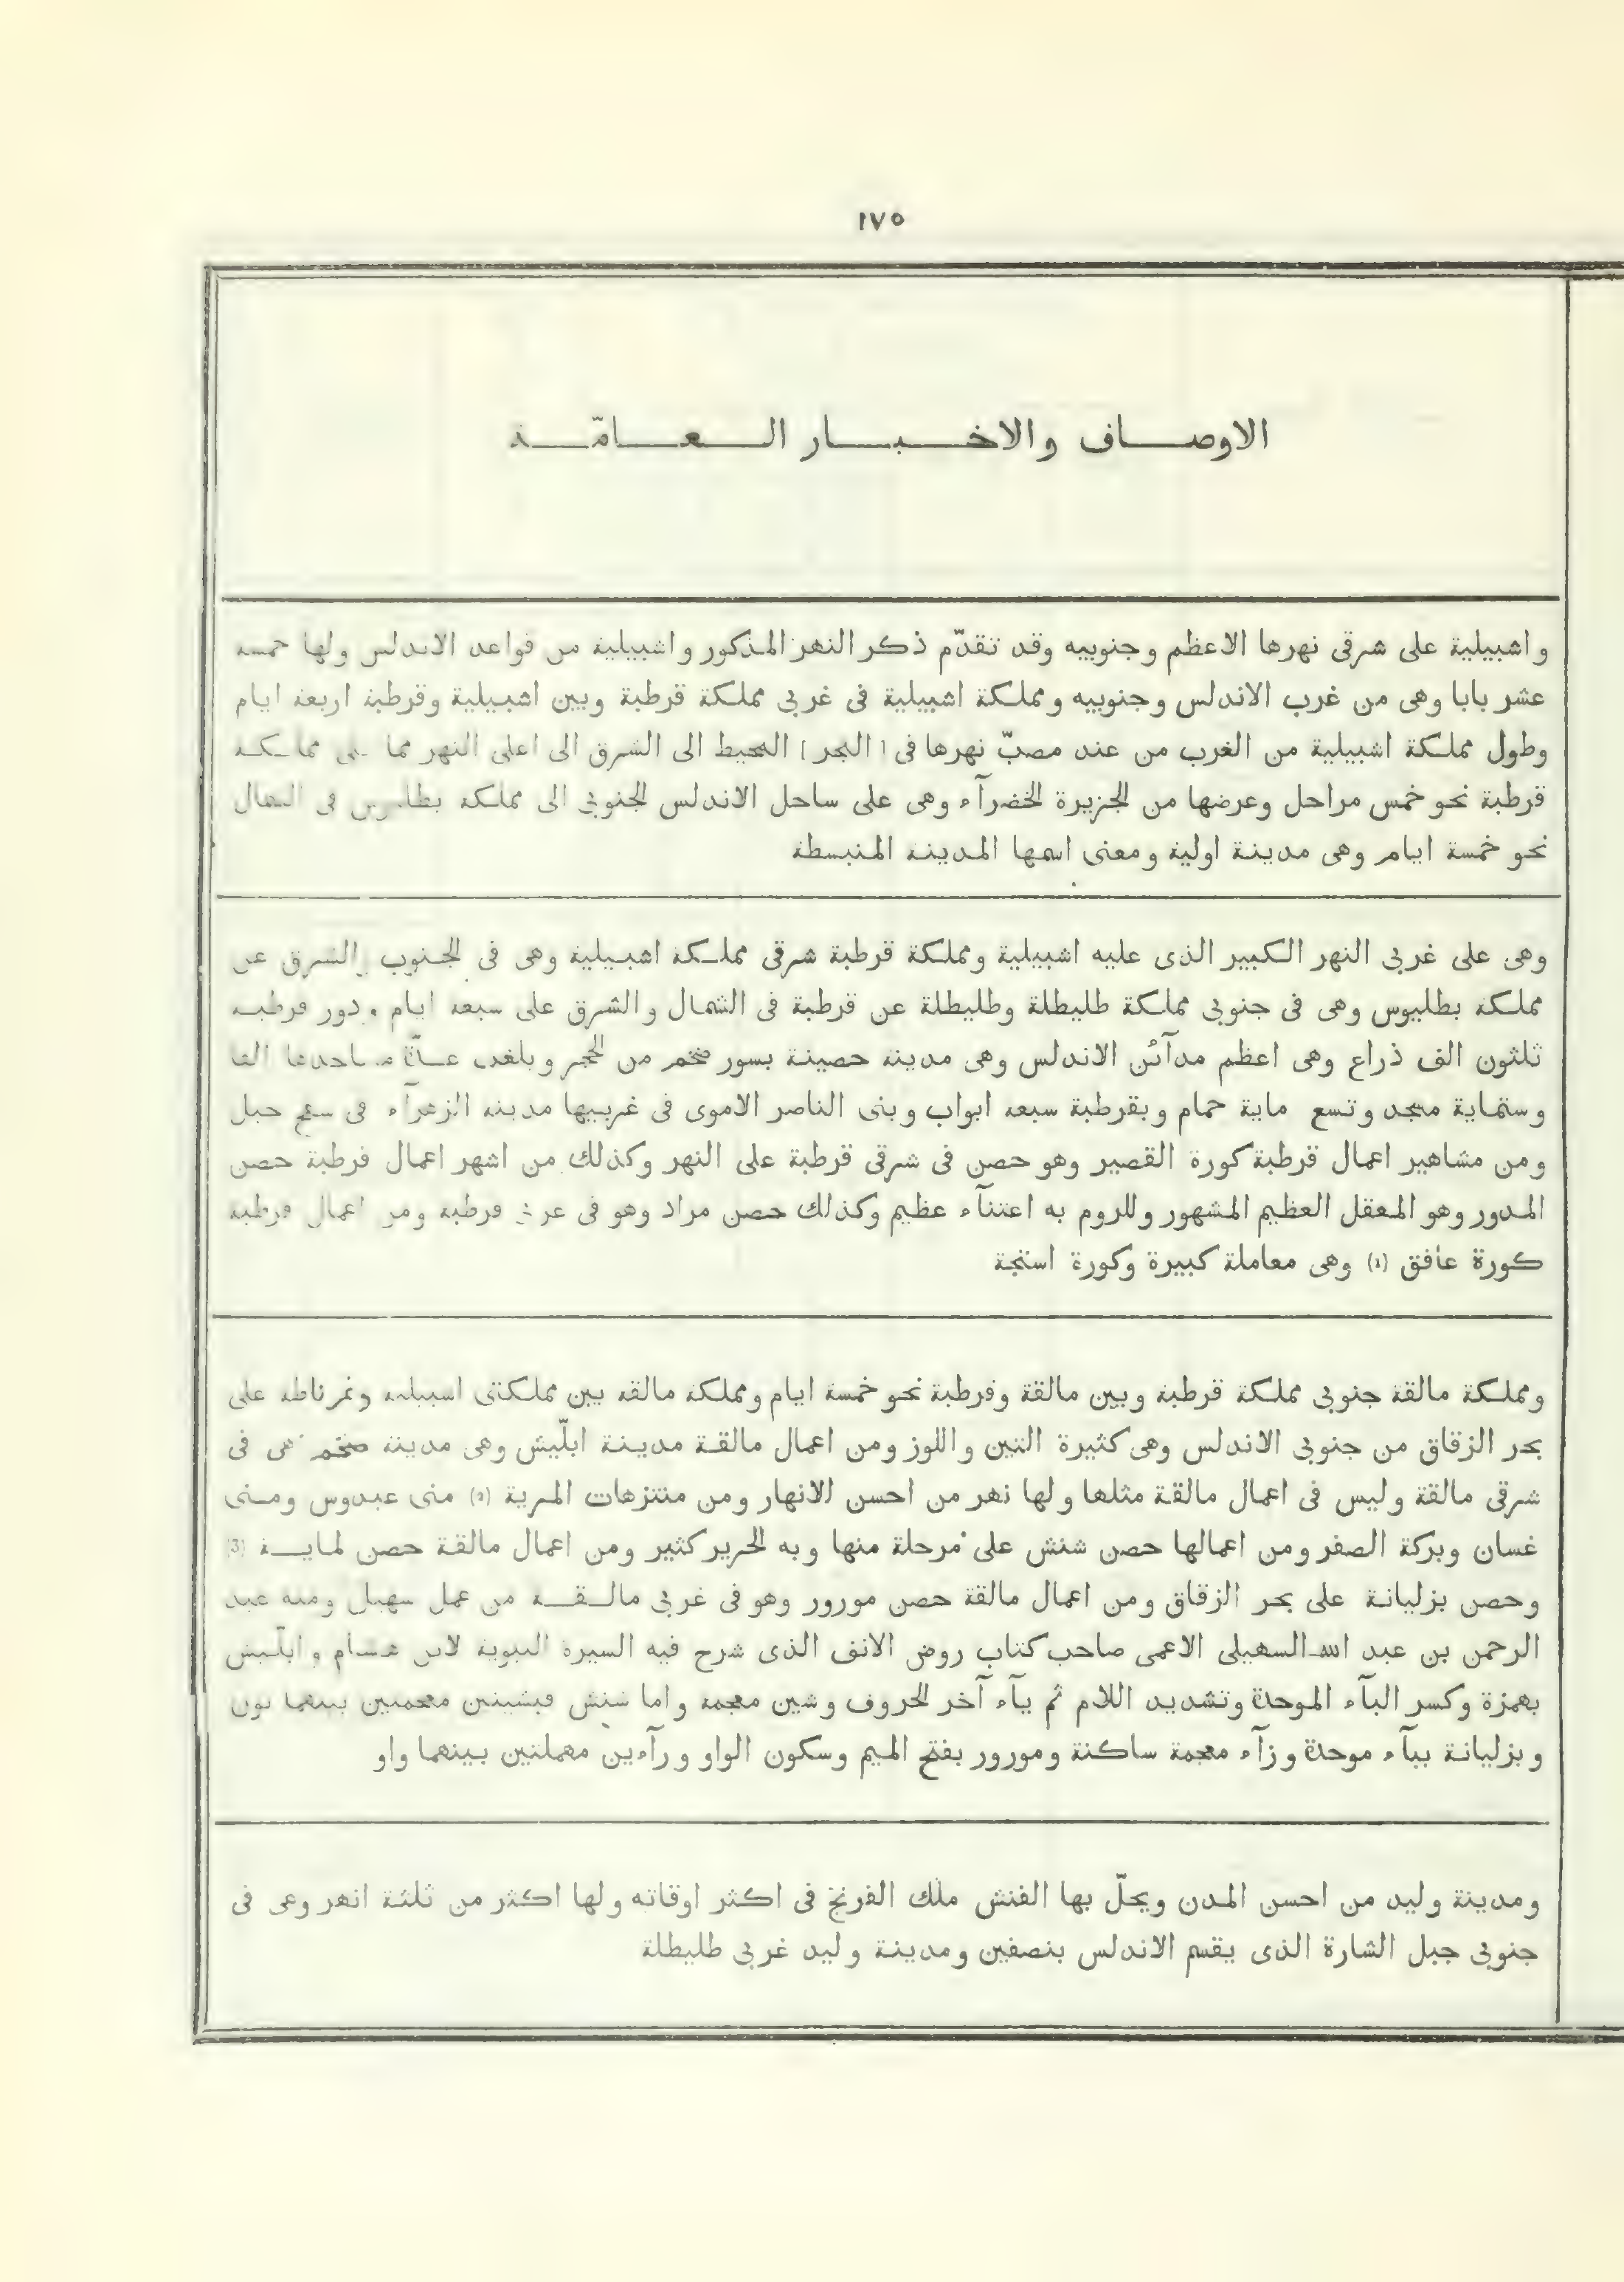 ١٧٥
الاوصاف والاخبار العامّة
واشبيلية على شرقى نهرها الاعظم وجنوبيه وقد تقدّم ذكر النهر المذكور واشبيلية من قواعد الاندلس ولها خمسة
عشر بابا وهى من غرب الاندلس وجنوبيه ومملكة اشبيلية فى غربى مملكة قرطبة وبين اشبيلية وقرطبة اربعة ايام
وطول مملكة اشبيلية من الغرب من عند مصبّ نهرها فى [البحر] المحيط الى الشرق الى اعلى النهر مما يلى مملكة
قرطبة نحو خمس مراحل وعرضها من الجزيرة الخضرآء وهى على ساحل الاندلس الجنوبى الى مملكة بطليوس فى الشمال
نحو خمسة ايام وهى مدينة اولية ومعنى اسمها المدينة المنبسطة
وهى على غربى النهر الكبير الذى عليه اشبيلية ومملكة قرطبة شرقى مملكة اشبيلية وهى فى الجنوب والشرق عن
مملكة بطليوس وهى فى جنوبى مملكة طليطلة وطليطلة عن قرطبة فى الشمال والشرق على سبعة ايام ودور قرطبة
ثلثون الف ذراع وهى اعظم مدآئن الاندلس وهى مدينة حصينة بسور ضخم من الحجر وبلغت عدّة مساجدها الفا
وستماية مسجد وتسع ماية حمام وبقرطبة سبعة ابواب وبنى الناصر الاموى فى غربيها مدينة الزهرآء فى سفح جبل
ومن مشاهير اعمال قرطبة كورة القصير وهو حصن فى شرقى قرطبة على النهر وكذلك من اشهر اعمال قرطبة حصن
المدور وهو المعقل العظيم المشهور وللروم به اعتنآء عظيم وكذلك حصن مراد وهو فى غربى قرطبة ومن اعمال قرطبة
كورة غافق (1) وهى معاملة كبيرة وكورة استجة
ومملكة مالقة جنوبى مملكة قرطبة وبين مالقة وقرطبة نحو خمسة ايام ومملكة مالقة بين مملكتى اشبيلية وغرناطة على
بحر الزقاق من جنوبى الاندلس وهى كثيرة التين واللوز ومن اعمال مالقة مدينة ابلّيش وهى مدينة ضخمة وهى فى
شرقى مالقة وليس فى اعمال مالقة مثلها ولها نهر من احسن الانهار ومن منتزهات المرية (2) منى عبدوس ومنى
غسان وبركة الصفر ومن اعمالها حصن شنش على مرحلة منها وبه الحرير كثير ومن اعمال مالقة حصن لماية (3)
وحصن بزليانة على بحر الزقاق ومن اعمال مالقة حصن مورور وهو فى غربى مالقة من عمل سهيل ومنه عبد
الرحمن بن عبد الله السهيلى الاعمى صاحب كتاب روض الانف الذى شرح فيه السيرة النبوية لابن هشام وابلّيش
بهمزة وكسر البآء الموحدة وتشديد اللام ثم يآء آخر الحروف وشين معجمة واما شنش فبشينين معجمتين بينهما نون
وبزليانة ببآء موحدة وزآء معجمة ساكنة ومورور بفتح الميم وسكون الواو ورآءين مهملتين بينهما واو
ومدينة وليد من احسن المدن ويحلّ بها الفنش ملك الفرنج فى اكثر اوقاته ولها اكثر من ثلثة انهر وهى فى
جنوبى جبل الشارة الذى يقسم الاندلس بنصفين ومدينة وليد غربى طليطلة